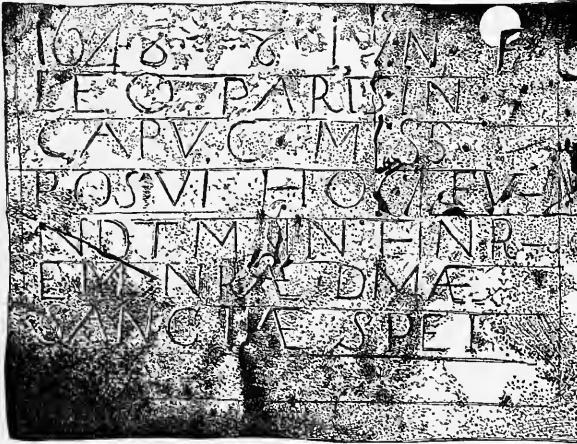 1648 · 8 IVN · F ·
LEO · PARISIN ·
CAPVC · MISS ·
POSVI HOC FV-
NDTM IN HNR-
EM NRÆ DMÆ
SANCTÆ SPEI